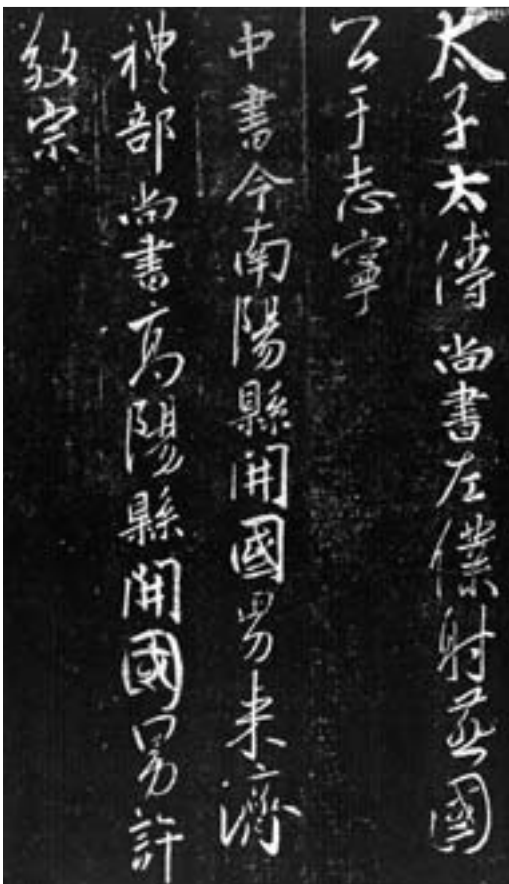 太子太傅尚書左僕射燕國
公于志寧
中書令南陽縣開國男来濟
禮部尚書高陽縣開國男許
敬宗